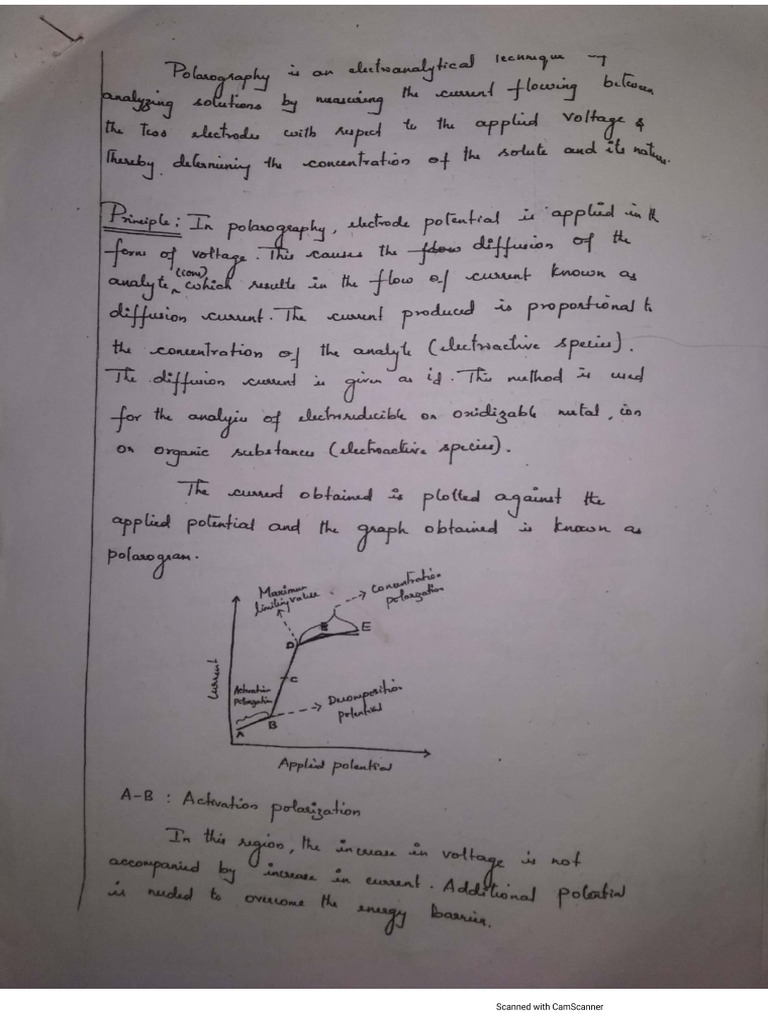 Polarography is an electroanalytical technique
analyzing solutions by measuring the current flowing between
the two electrodes with respect to the applied voltage &
thereby determining the concentration of the solute and its nature.
Principle: In polarography, electrode potential is applied in th
form of voltage. This causes the flow diffusion of the
analyte (ions) which results in the flow of current known as
diffusion current. The current produced is proportional to
the concentration of the analyte (electroactive species).
The diffusion current is given as id. This method is used
for the analysis of electroreducible or oxidizable metal, ion
or organic substances (electroactive species).
The current obtained is plotted against the
applied potential and the graph obtained is known as
polarogram.
Maximum
limiting value
Concentration
polarization
D
E
E
Current
C
Activation
polarization
Decomposition
potential
A
B
Applied potential
A-B : Activation polarization
In this region, the increase in voltage is not
accompanied by increase in current. Additional potential
is needed to overcome the energy barrier.
Scanned with CamScanner